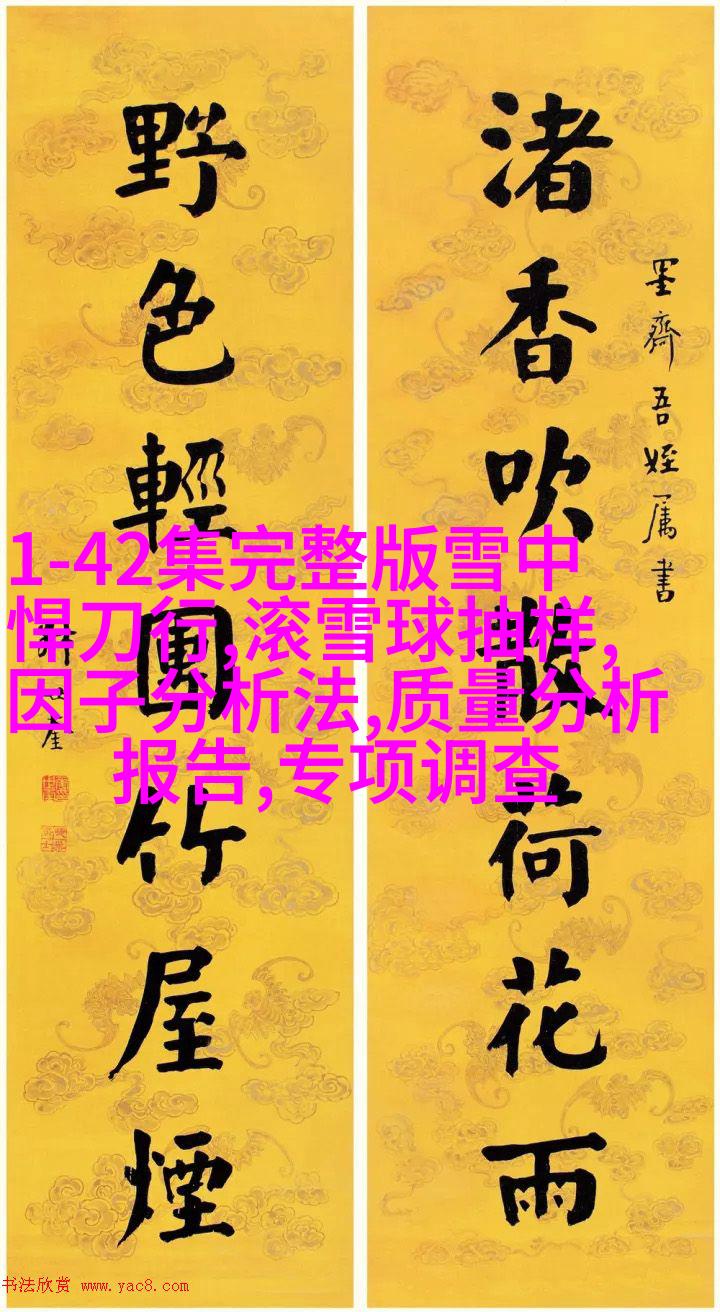 墨齋吾姪属書
渚香吹散荷花雨
野色輕團竹屋煙
1-42集完整版雪中
悍刀行,滚雪球抽样,
因子分析法,质量分析
报告,专项调查
书法欣赏 www.yac8.com